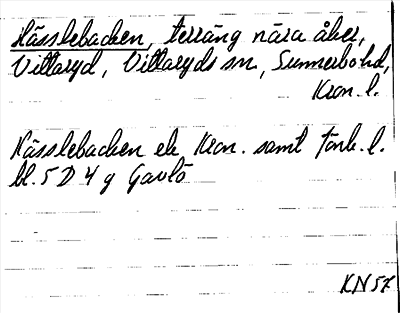 Hässlebacken, terräng nära åker,
Vittaryd, Vittaryds sn, Sunnerbo hd,
Kron. l.
Hässlebacken ek. Kron. samt Jönk. l.
bl. 5 D 4 g Gavlö
KN 57